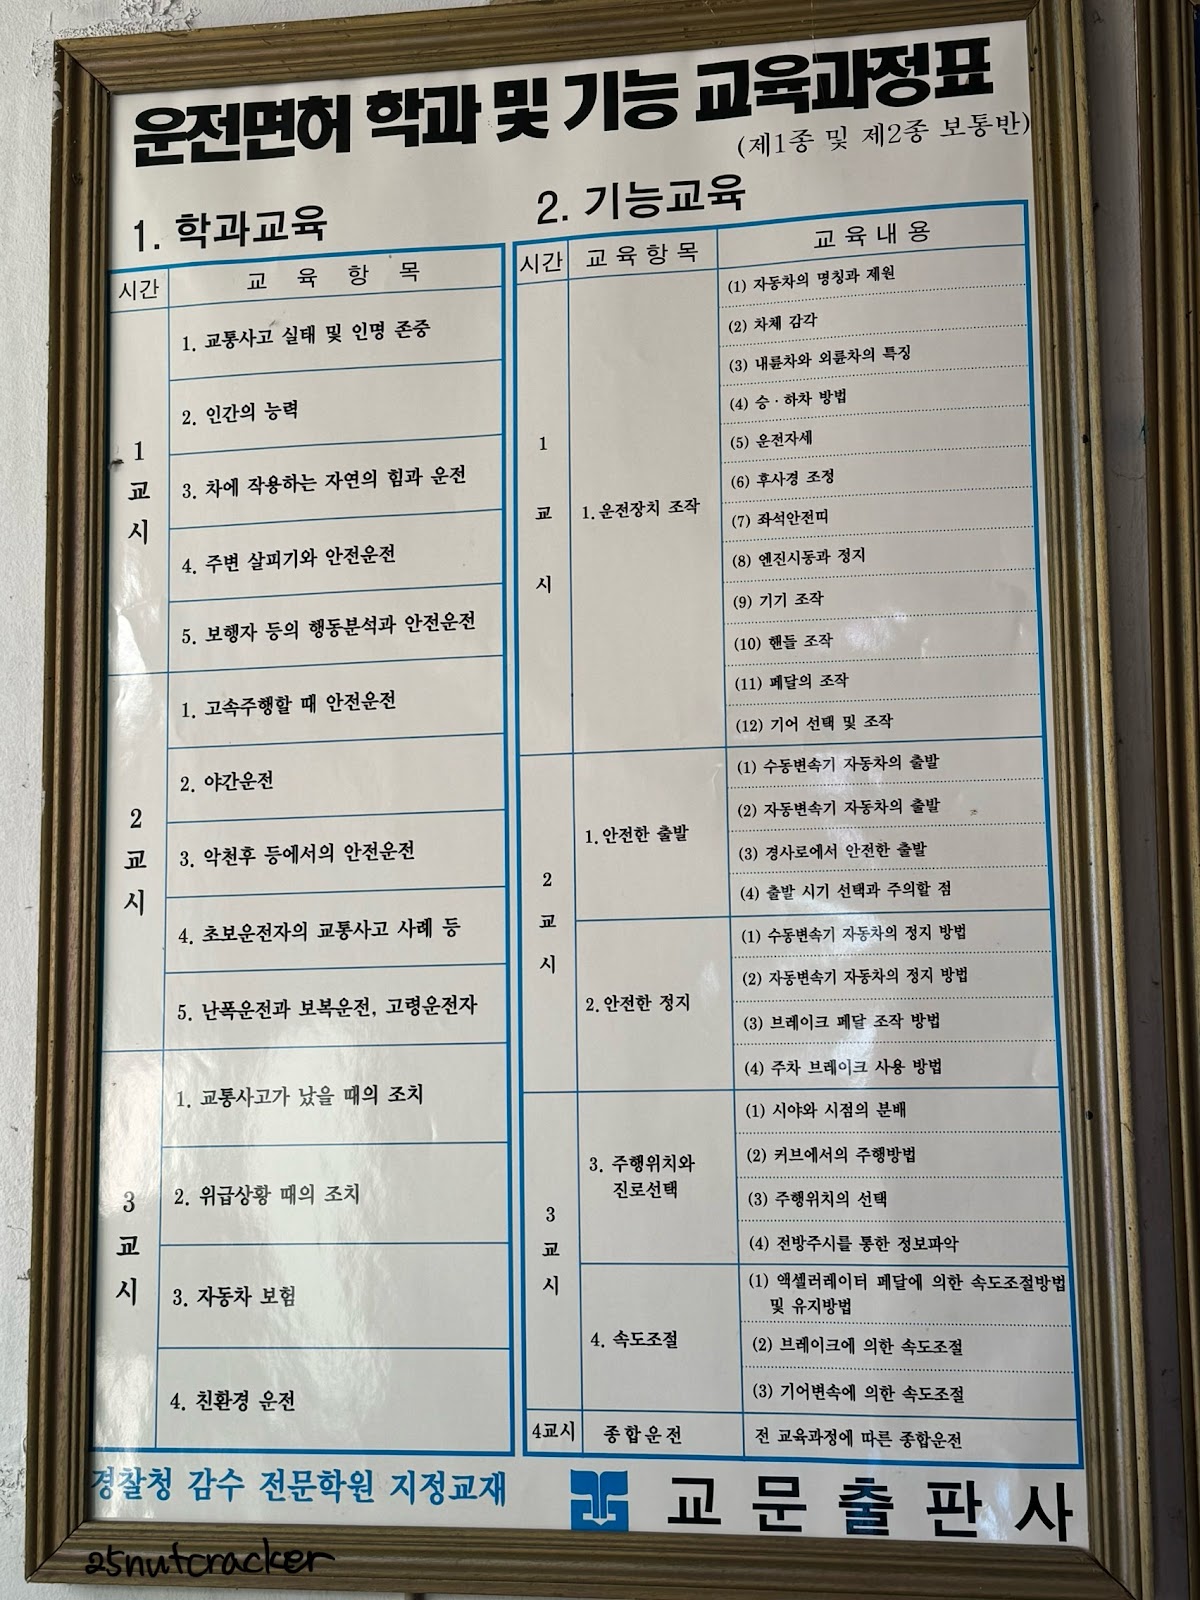 운전면허 학과 및 기능 교육과정표
(제1종 및 제2종 보통반)
1. 학과교육
시간 교육항목
1교시
1. 교통사고 실태 및 인명 존중
2. 인간의 능력
3. 차에 작용하는 자연의 힘과 운전
4. 주변 살피기와 안전운전
5. 보행자 등의 행동분석과 안전운전
2교시
1. 고속주행할 때 안전운전
2. 야간운전
3. 악천후 등에서의 안전운전
4. 초보운전자의 교통사고 사례 등
5. 난폭운전과 보복운전, 고령운전자
3교시
1. 교통사고가 났을 때의 조치
2. 위급상황 때의 조치
3. 자동차 보험
4. 친환경 운전
2. 기능교육
시간 교육항목 교육내용
1교시
1. 운전장치 조작
(1) 자동차의 명칭과 제원
(2) 차체 감각
(3) 내륜차와 외륜차의 특징
(4) 승·하차 방법
(5) 운전자세
(6) 후사경 조정
(7) 좌석안전띠
(8) 엔진시동과 정지
(9) 기기 조작
(10) 핸들 조작
(11) 페달의 조작
(12) 기어 선택 및 조작
2교시
1. 안전한 출발
(1) 수동변속기 자동차의 출발
(2) 자동변속기 자동차의 출발
(3) 경사로에서 안전한 출발
(4) 출발 시기 선택과 주의할 점
2. 안전한 정지
(1) 수동변속기 자동차의 정지 방법
(2) 자동변속기 자동차의 정지 방법
(3) 브레이크 페달 조작 방법
(4) 주차 브레이크 사용 방법
3교시
3. 주행위치와
진로선택
(1) 시야와 시점의 분배
(2) 커브에서의 주행방법
(3) 주행위치의 선택
(4) 전방주시를 통한 정보파악
4. 속도조절
(1) 액셀러레이터 페달에 의한 속도조절방법
및 유지방법
(2) 브레이크에 의한 속도조절
(3) 기어변속에 의한 속도조절
4교시 종합운전 전 교육과정에 따른 종합운전
경찰청 감수 전문학원 지정교재
교문출판사
25nutcracker